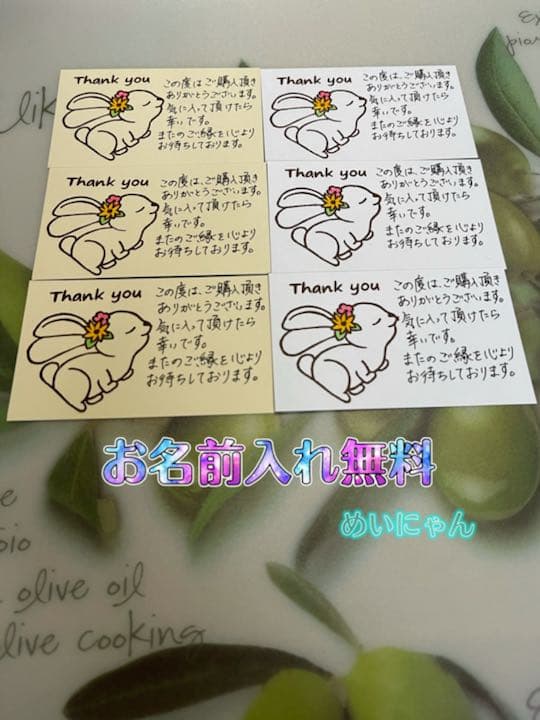 like
Ex
pian
Thank you
この度は、ご購入頂き
ありがとうございます。
気に入って頂けたら
幸いです。
またのご縁を心より
お待ちしております。
Thank you
この度は、ご購入頂き
ありがとうございます。
気に入って頂けたら
幸いです。
またのご縁を心より
お待ちしております。
Thank you
この度は、ご購入頂き
ありがとうございます。
気に入って頂けたら
幸いです。
またのご縁を心より
お待ちしております。
Thank you
この度は、ご購入頂き
ありがとうございます。
気に入って頂けたら
幸いです。
またのご縁を心より
お待ちしております。
Thank you
この度は、ご購入頂き
ありがとうございます。
気に入って頂けたら
幸いです。
またのご縁を心より
お待ちしております。
Thank you
この度は、ご購入頂き
ありがとうございます。
気に入って頂けたら
幸いです。
またのご縁を心より
お待ちしております。
お名前入れ無料
めいにゃん
olive oil
live cooking